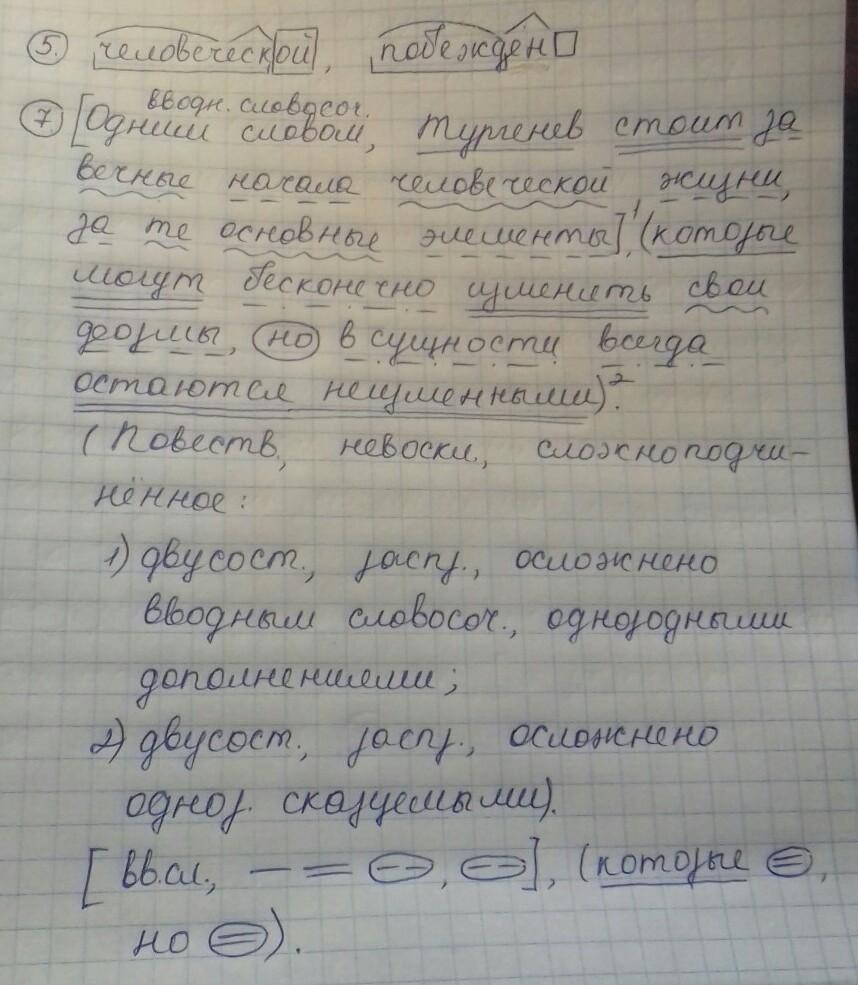 5. человеческой, побежден
вводн. словосоч.
7 [Одним словом, Тургенев стоит за
вечные начала человеческой жизни,
за те основные элементы]¹, (которые
могут бесконечно изменять свои
формы, но в сущности всегда
остаются неизменными)².
(Повеств., невоскл., сложноподчи-
нённое:
1) двусост., распр., осложнено
вводным словосоч., однородными
дополнениями;
2) двусост., распр., осложнено
однор. сказуемыми).
[вв.сл., — = , ], (которые =,
но =).